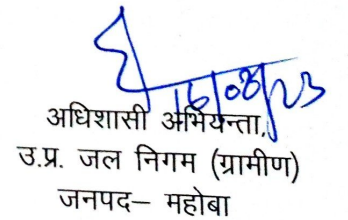 16/08/23
अधिशासी अभियन्ता,
उ.प्र. जल निगम (ग्रामीण)
जनपद– महोबा